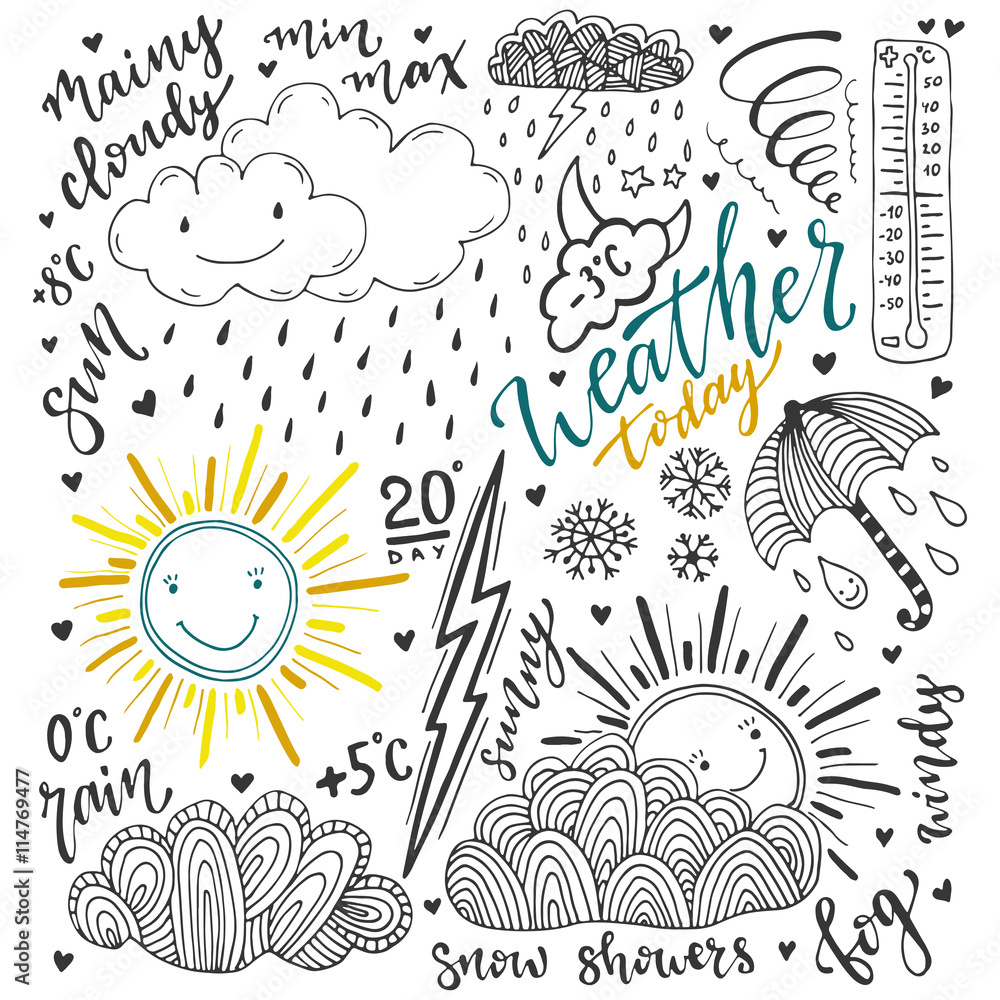 mainy
cloudy
min
max
+ °C
50
40
30
20
10
-10
-20
-30
-40
-50
+8°C
-3°C
sun
Weather
today
20°
DAY
sunny
0°C
rain
+5°C
windy
fog
snow showers
Adobe Stock | #114769477